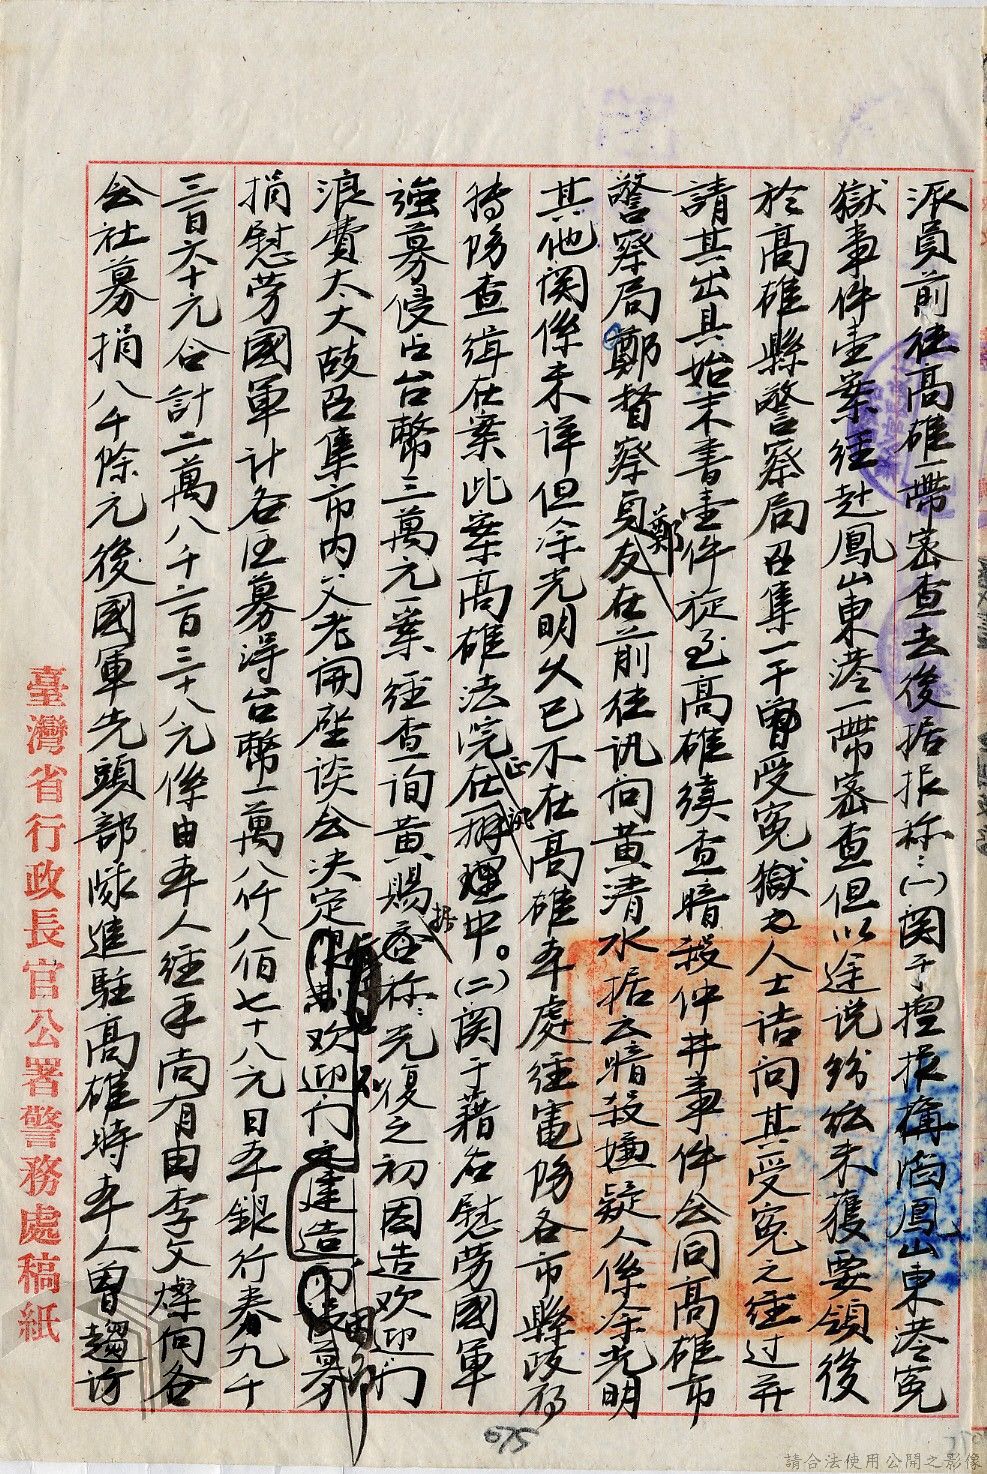 派員前往高雄一帶密查去後据报称：㈠関于擅报構陷鳳山東港冤
獄事件壹案経赴鳳山東港一帶密查但以途说紛紜未獲要領後
於高雄縣警察局召集一干曽受冤獄之人士詰问其受冤之経过並
請其出具始末書壹件旋至高雄續查暗殺仲井事件会同高雄市
警察局鄭督察員友在前往讯问黄清水据云暗殺嫌疑人係涂光明
鄭
其他関係未详但涂光明久已不在高雄本處経電飭各市縣政府
特飭查缉在案此案高雄法院在办理中。㈡関于藉名慰劳國軍
正
强募侵占台幣三萬元一案経查询黄賜称：光復之初因造欢迎门
据
浪費太大故召集市内父老開座谈会决定欢迎门建造募
由
捐慰劳國軍計各区募得台幣一萬八仟八佰七十八元日本銀行券九千
三百六十元合計二萬八千二百三十八元係由本人経手尚有由李文燦向各
会社募捐八千除元後國軍先頭部隊進駐高雄時本人曽趨访
臺灣省行政長官公署警務處稿紙
675
請合法使用公開之影像